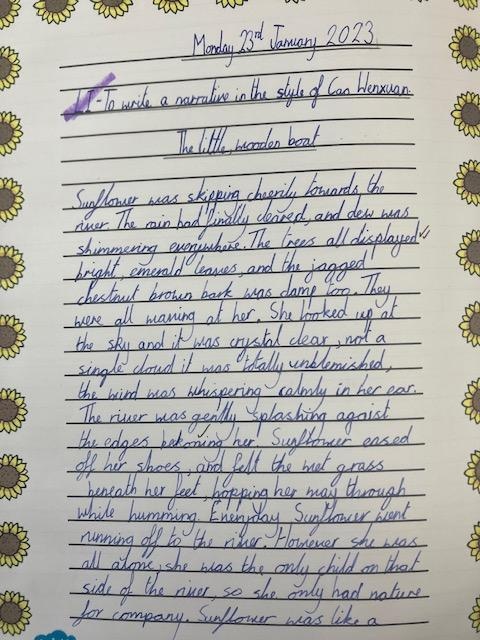 Monday 23rd January 2023
LI-To write a narrative in the style of Cao Wenxuan.
The little, wooden boat
Sunflower was skipping cheerily towards the
river. The rain had finally cleared, and dew was
shimmering everywhere. The trees all displayed
bright, emerald leaves, and the jagged
chestnut brown bark was damp too. They
were all waving at her. She looked up at
the sky and it was crystal clear, not a
single cloud it was totally unblemished,
the wind was whispering calmly in her ear.
The river was gently splashing agaist
the edges bekoning her. Sunflower eased
off her shoes, and felt the wet grass
beneath her feet, hopping her way through
while humming. Everyday, Sunflower went
running off to the river. However she was
all alone, she was the only child on that
side of the river, so she only had nature
for company. Sunflower was like a